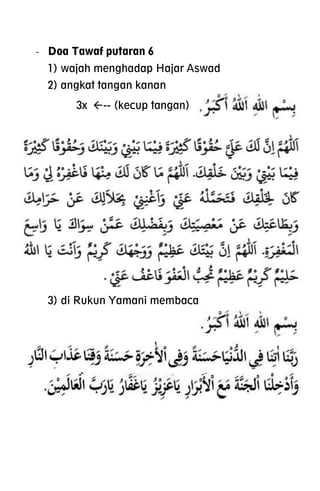 - Doa Tawaf putaran 6
1) wajah menghadap Hajar Aswad
2) angkat tangan kanan
3x <-- (kecup tangan) بِسْمِ اللهِ اَللهُ أَكْبَرُ.
اَللّٰهُمَّ اِنَّ لَكَ عَلَيَّ حُقُوْقًا كَثِيْرَةً فِيْمَا بَيْنِيْ وَبَيْنَكَ وَحُقُوْقًا كَثِيْرَةً
فِيْمَا بَيْنِيْ وَبَيْنَ خَلْقِكَ. اَللّٰهُمَّ مَا كَانَ لَكَ مِنْهَا فَاغْفِرْهُ لِيْ وَمَا
كَانَ لِخَلْقِكَ فَتَحَمَّلْهُ عَنِّيْ وَاَغْنِنِيْ بِحَلَالِكَ عَنْ حَرَامِكَ
وَبِطَاعَتِكَ عَنْ مَعْصِيَتِكَ وَبِفَضْلِكَ عَمَّنْ سِوَاكَ يَا وَاسِعَ
الْمَغْفِرَةِ. اَللّٰهُمَّ اِنَّ بَيْتَكَ عَظِيْمٌ وَوَجْهَكَ كَرِيْمٌ وَاَنْتَ يَا اَللهُ
حَلِيْمٌ كَرِيْمٌ عَظِيْمٌ تُحِبُّ الْعَفْوَ فَاعْفُ عَنِّيْ.
3) di Rukun Yamani membaca
بِسْمِ اللهِ اَللهُ أَكْبَرُ.
رَبَّنَا اٰتِنَا فِي الدُّنْيَا حَسَنَةً وَفِى اْلأٰخِرَةِ حَسَنَةً وَقِنَا عَذَابَ النَّارِ
وَأَدْخِلْنَا الْجَنَّةَ مَعَ اْلأَبْرَارِ يَاعَزِيْزُ يَاغَفَّارُ يَارَبَّ الْعَالَمِيْنَ.